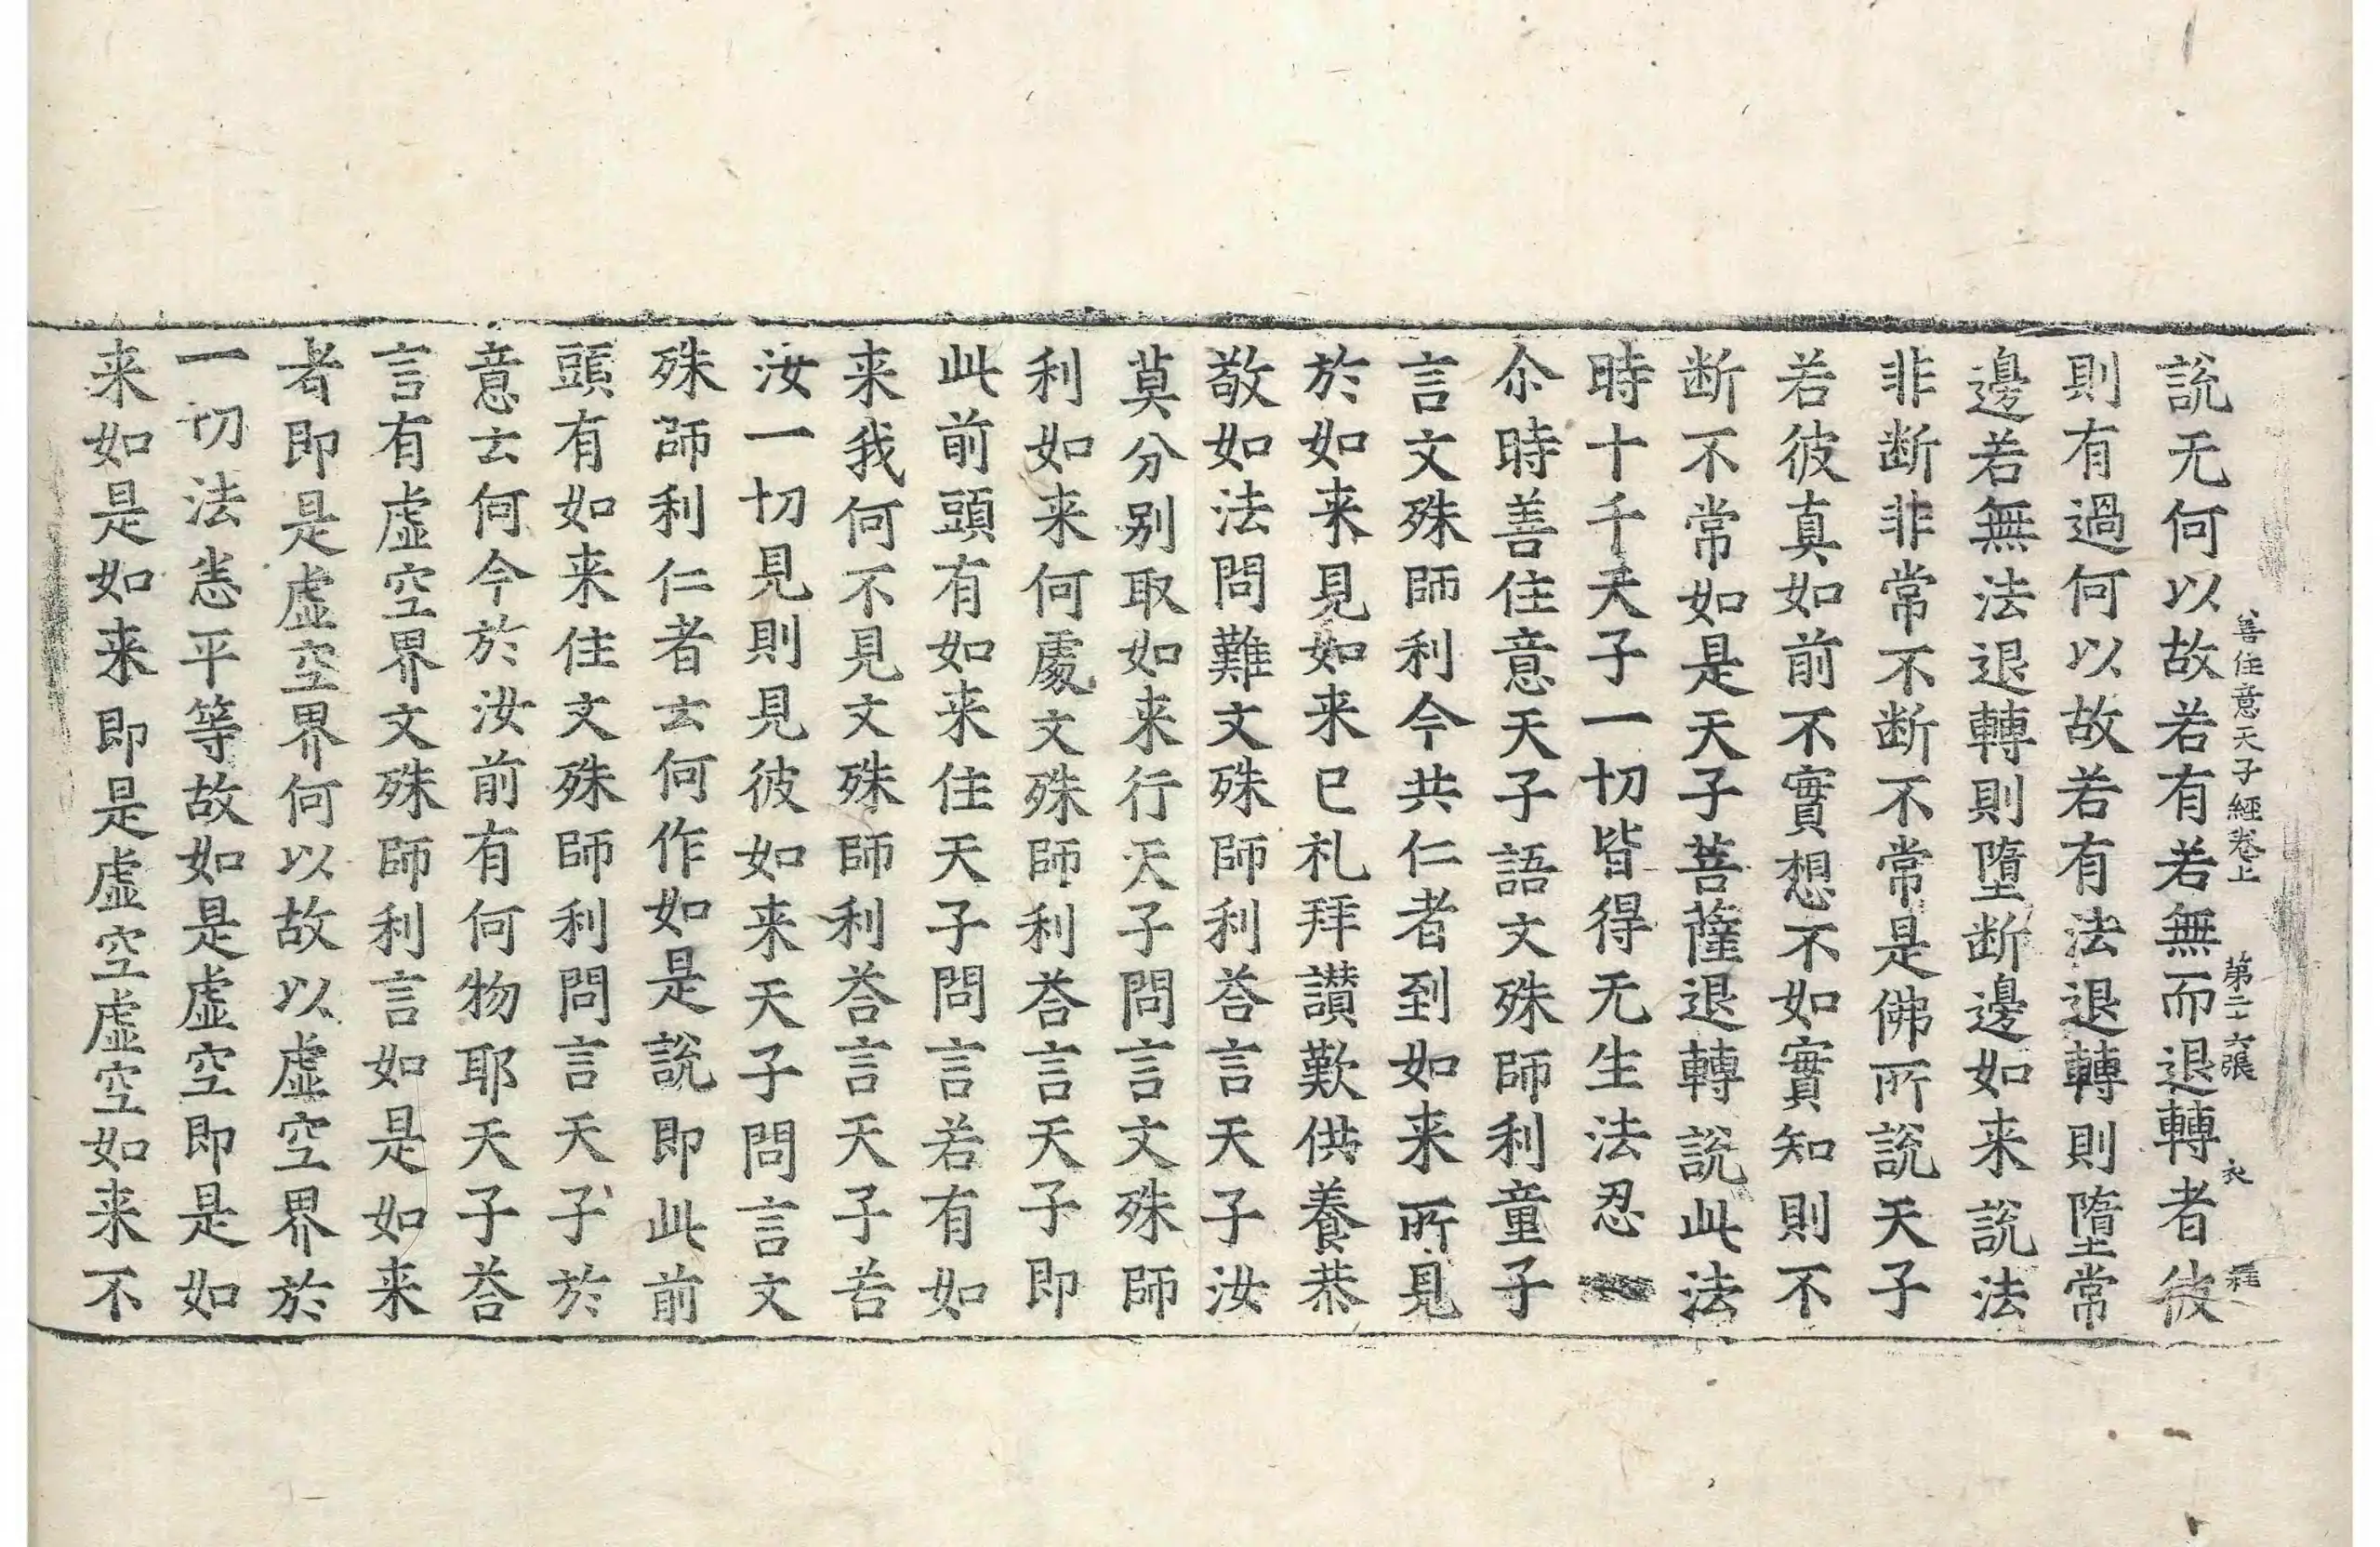 善住意天子經卷上　第二十六張　衣
說无何以故若有若無而退轉者彼
則有過何以故若有法退轉則墮常
邊若無法退轉則墮断邊如来說法
非断非常不断不常是佛所說天子
若彼真如前不實想不如實知則不
断不常如是天子菩薩退轉說此法
時十千天子一切皆得无生法忍
尒時善住意天子語文殊師利童子
言文殊師利今共仁者到如来所見
於如来見如来已礼拜讃歎供養恭
敬如法問難文殊師利荅言天子汝
莫分别取如来行天子問言文殊師
利如来何處文殊師利荅言天子即
此前頭有如来住天子問言若有如
来我何不見文殊師利荅言天子若
汝一切見則見彼如来天子問言文
殊師利仁者云何作如是說即此前
頭有如来住文殊師利問言天子於
意云何今於汝前有何物耶天子荅
言有虛空界文殊師利言如是如来
者即是虛空界何以故以虛空界於
一切法恚平等故如是虛空即是如
来如是如来即是虛空虛空如来不